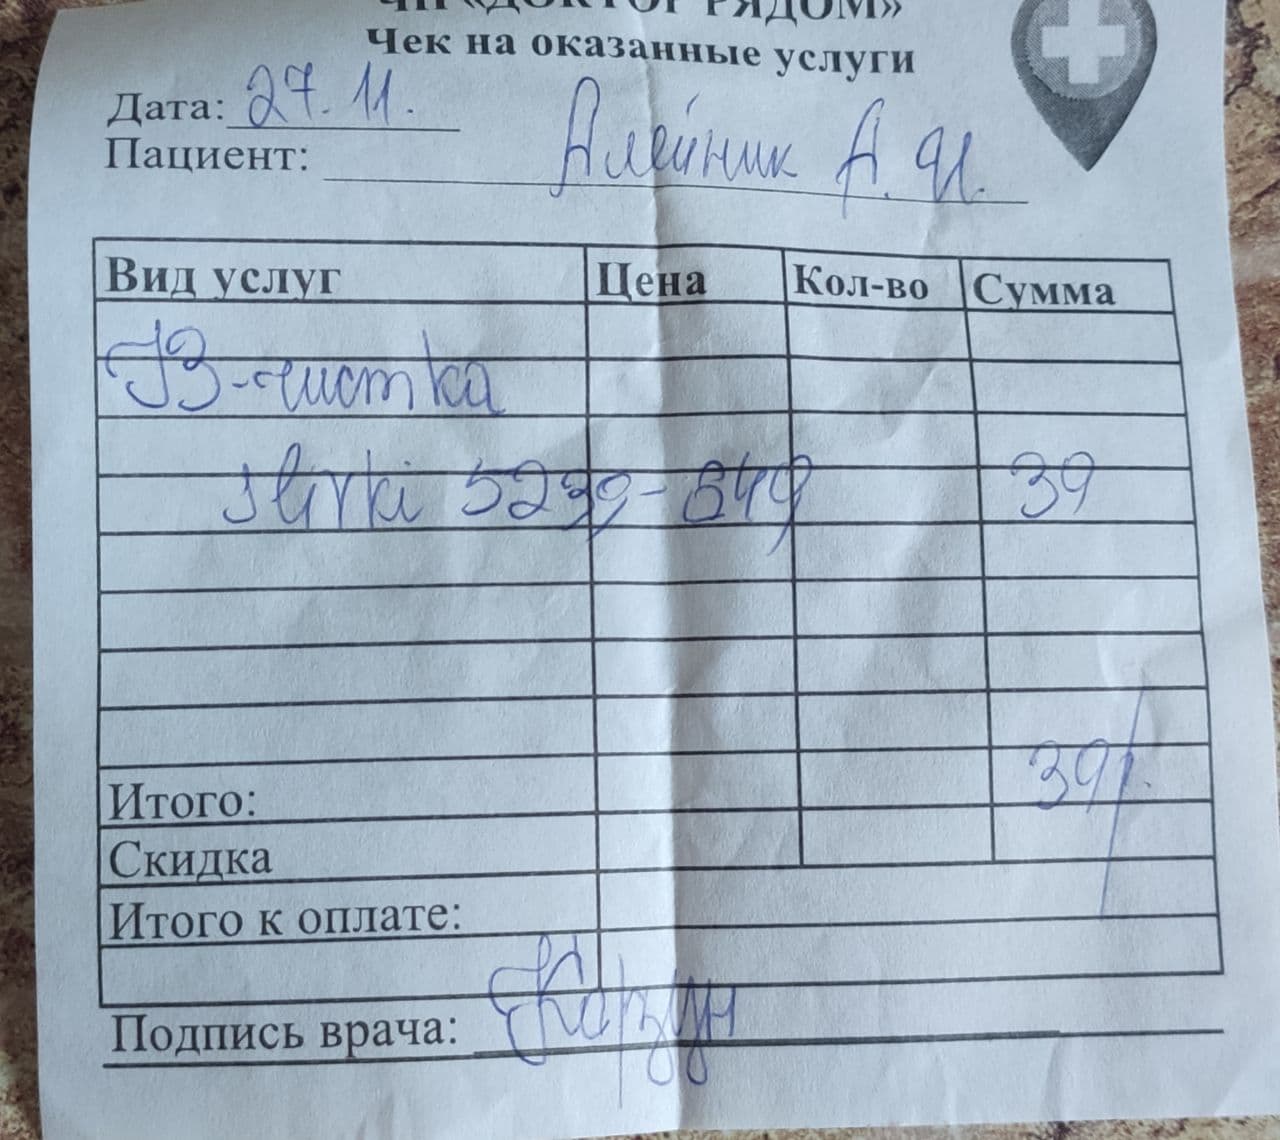 ЧП «ДОКТОР РЯДОМ»
Чек на оказанные услуги
Дата: 27.11.
Пациент: Алейник А. И.
Вид услуг Цена Кол-во Сумма
УЗ-чистка
slivki 5299-849 39
Итого: 39р.
Скидка
Итого к оплате:
Подпись врача: